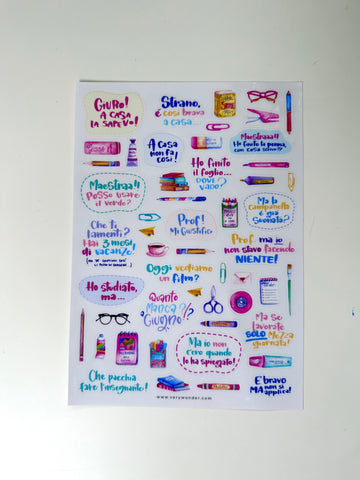 GIURO!
A CASA
LA SAPEVO!
Strano,
è così brava
a casa...
A casa
non fa
così!
Maestraaa!!
Ho finito la penna,
con cosa scrivo?
Ho finito
il foglio...
DOVE
VADO?
Maestraa!!
Posso usare
il verde?
Prof!
Mi Giustifico
Ma la
campanella
è già
suonata?
Che ti
lamenti?
Hai 3 mesi
di vacanze.
Prof, ma io
non stavo facendo
NIENTE!
Oggi vediamo
un film?
Ho studiato,
ma...
Quanto
MANCA A
Giugno?
Ma se
lavorate
SOLO mezza
giornata!
Ma io non
c'ero quando
lo ha spiegato!
Che pacchia
fare l'insegnante!
È bravo
MA non si
applica!
www.verywonder.com